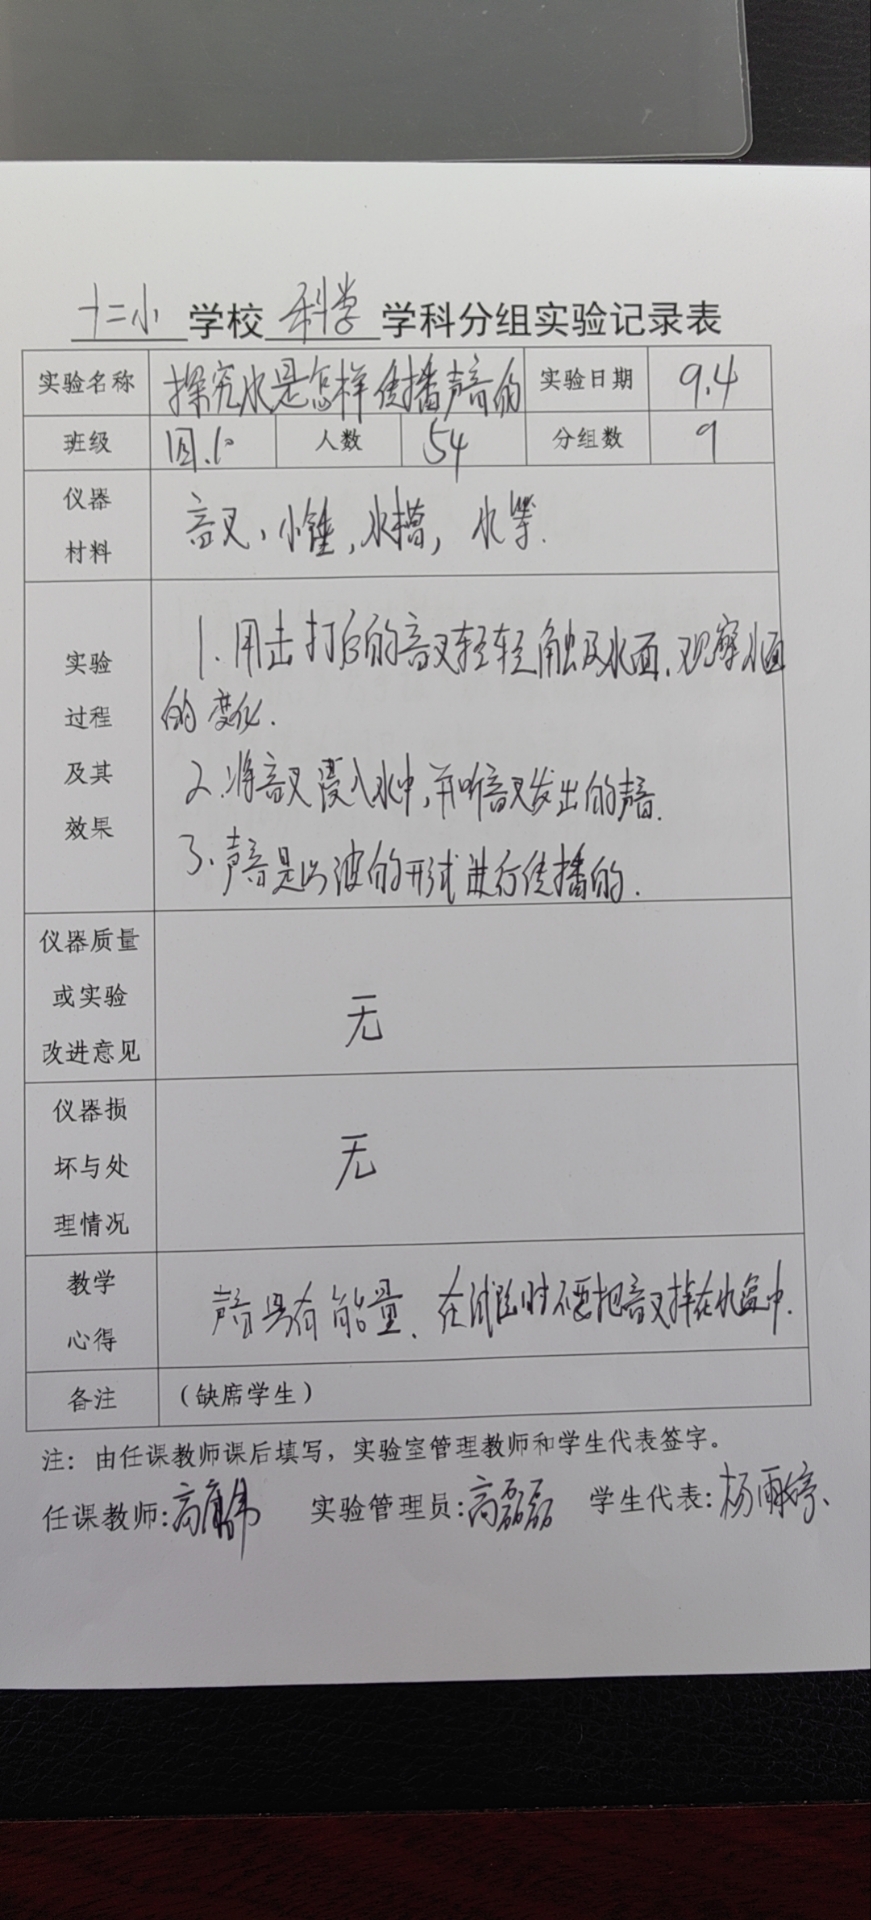 十二小学校科学学科分组实验记录表
实验名称 探究水是怎样传播声音的 实验日期 9.4
班级 四.10 人数 54 分组数 9
仪器
材料
音叉、小锤,水槽,水等.
实验
过程
及其
效果
1.用击打后的音叉轻轻触及水面,观察水面
的变化.
2.将音叉浸入水中,并听音叉发出的声音.
3.声音是以波的形式进行传播的.
仪器质量
或实验
改进意见
无
仪器损
坏与处
理情况
无
教学
心得
声音具有能量、在试验时不要把音叉掉在水盆中.
备注 (缺席学生)
注:由任课教师课后填写,实验室管理教师和学生代表签字。
任课教师: 实验管理员:高磊磊 学生代表:杨雨婷